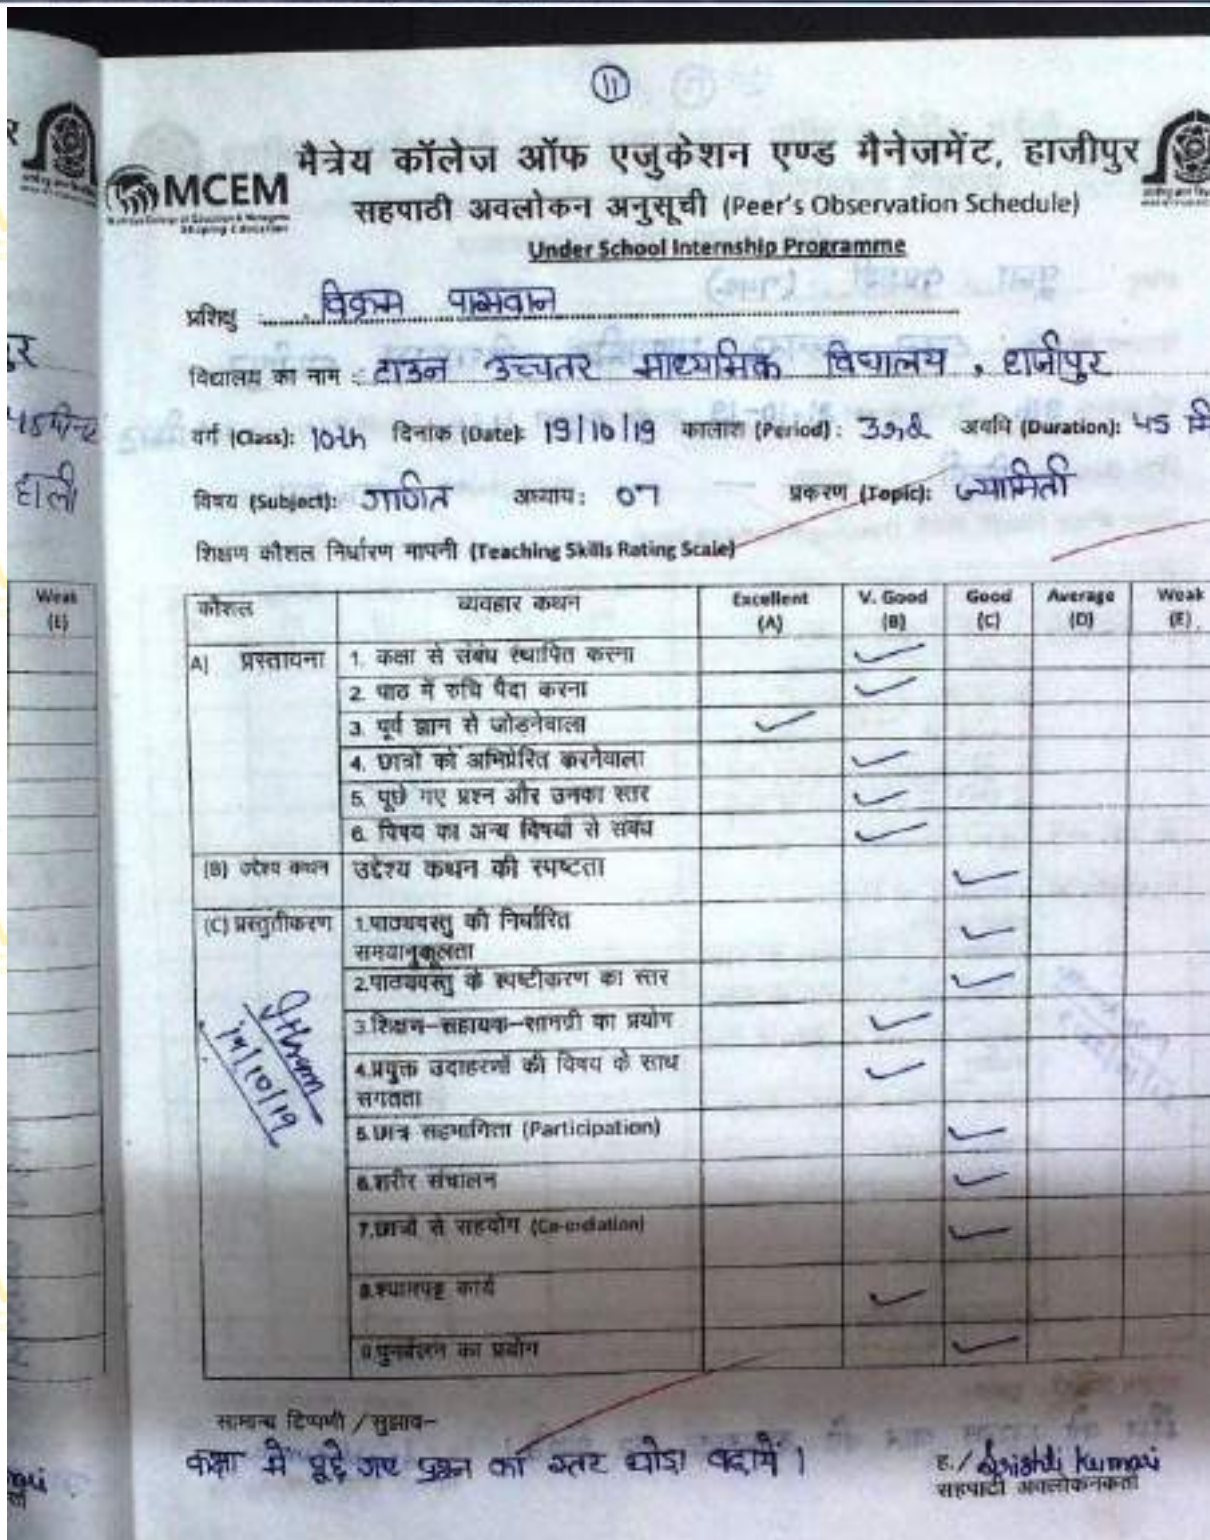 ११
मैत्रेय कॉलेज ऑफ एजुकेशन एण्ड मैनेजमेंट, हाजीपुर
MCEM
सहपाठी अवलोकन अनुसूची (Peer's Observation Schedule)
Under School Internship Programme
प्रशिक्षु विक्रम पासवान
विद्यालय का नाम : टाउन उच्चतर माध्यमिक विद्यालय , हाजीपुर
वर्ग (Class): 10th दिनांक (Date): 19/10/19 कालांश (Period) : 3rd अवधि (Duration): 45 मि
विषय (Subject): गणित अध्याय : 07 प्रकरण (Topic): ज्यामिती
शिक्षण कौशल निर्धारण मापनी (Teaching Skills Rating Scale)
कौशल व्यवहार कथन Excellent (A) V. Good (B) Good (C) Average (D) Weak (E)
A) प्रस्तावना 1. कक्षा से संबंध स्थापित करना ✓
2. पाठ में रुचि पैदा करना ✓
3. पूर्व ज्ञान से जोड़नेवाला ✓
4. छात्रों को अभिप्रेरित करनेवाला ✓
5. पूछे गए प्रश्न और उनका स्तर ✓
6. विषय का अन्य विषयों से संबंध ✓
(B) उद्देश्य कथन उद्देश्य कथन की स्पष्टता ✓
(C) प्रस्तुतीकरण 1.पाठ्यवस्तु की निर्धारित
समयानुकूलता ✓
2.पाठ्यवस्तु के स्पष्टीकरण का स्तर ✓
3.शिक्षण–सहायक–सामग्री का प्रयोग ✓
4.प्रयुक्त उदाहरणों की विषय के साथ
संगतता ✓
19/10/19
5.छात्र सहभागिता (Participation) ✓
6.शरीर संचालन ✓
7.छात्रों से सहयोग (Co-ordiation) ✓
8.श्यामपट्ट कार्य ✓
9.पुनर्बलन का प्रयोग ✓
सामान्य टिप्पणी / सुझाव–
कक्षा में पूछे गए प्रश्न का स्तर थोड़ा बढ़ायें ।
ह./ Srishti Kumari
सहपाठी अवलोकनकर्ता
Weak
(E)